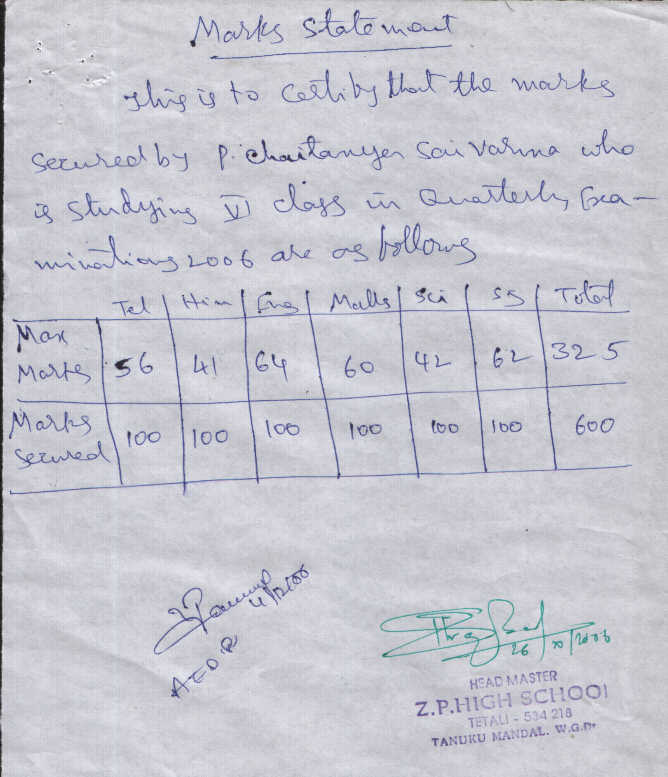 Marks Statement
This is to certify that the marks
secured by P. Chaitanya Sai Varma who
is studying VI class in Quarterly Exa-
minations 2006 are as follows
Tel Hin Eng Maths Sci SS Total
Max
Marks 56 41 64 60 42 62 325
Marks
Secured 100 100 100 100 100 100 600
26/10/2006
HEAD MASTER
Z.P.HIGH SCHOOl
TETALI - 534 218
TANUKU MANDAL. W.G.Dt.